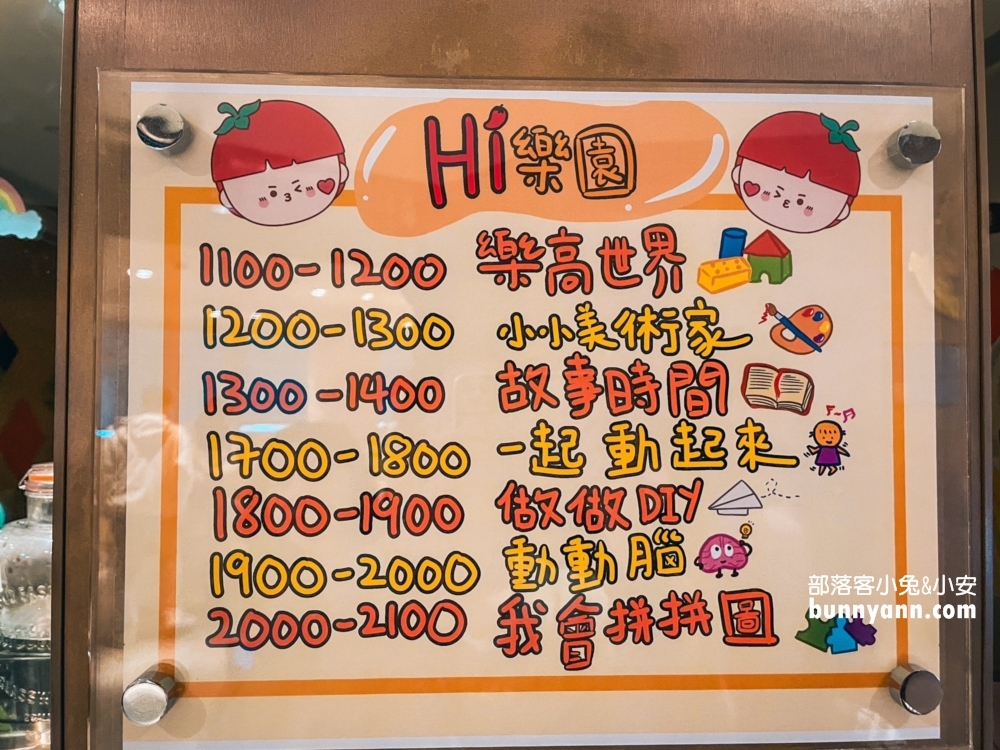 Hi樂園
1100-1200 樂高世界
1200-1300 小小美術家
1300-1400 故事時間
1700-1800 一起動起來
1800-1900 做做DIY
1900-2000 動動腦
2000-2100 我會拼拼圖
部落客小兔&小安
bunnyann.com